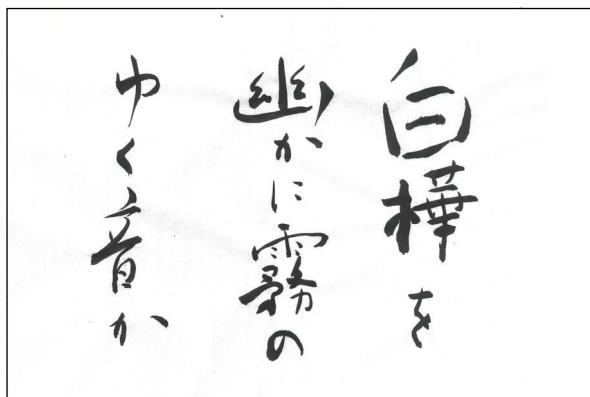 白樺を
幽かに霧の
ゆく音か